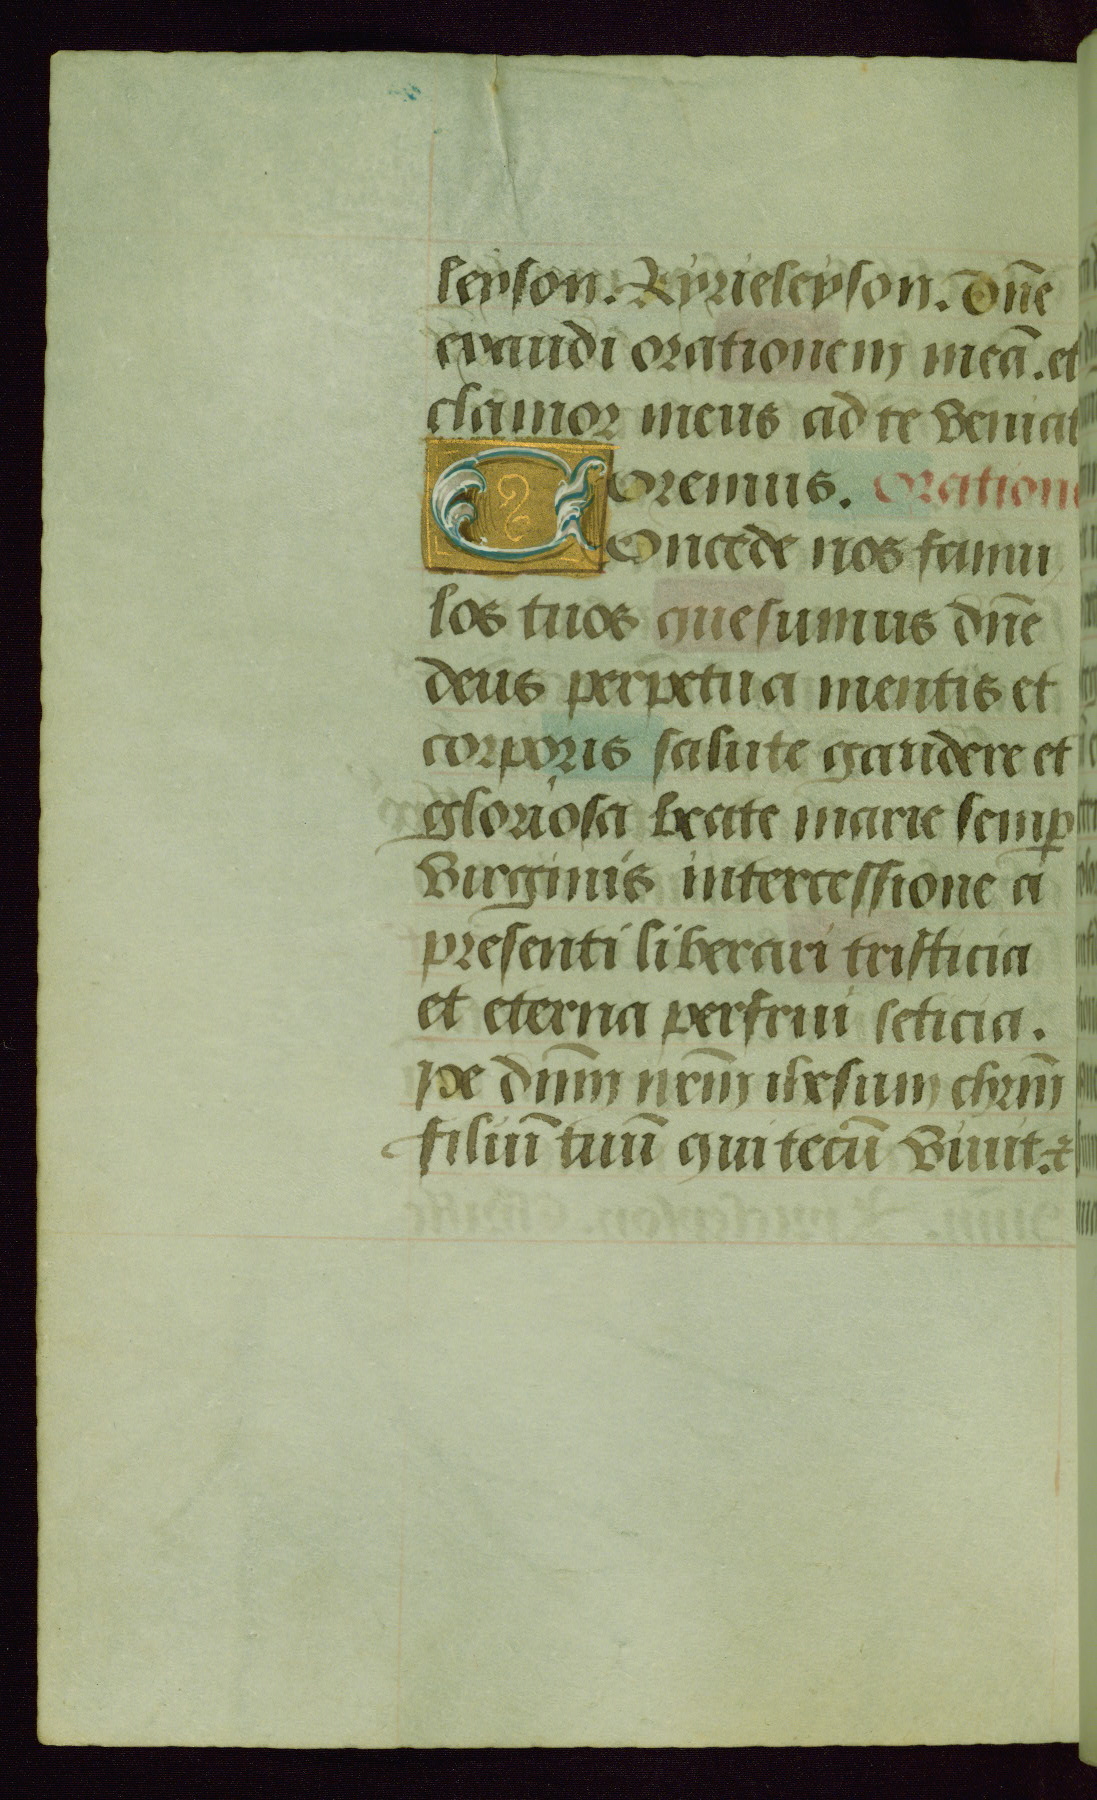 leyson. Kyrieleyson. Dn̄e
exaudi orationem meā. et
clamor meus ad te veniat
Oremus. Oratione
Concede nos famu
los tuos quesumus dn̄e
deus perpetua mentis et
corporis salute gaudere et
gloriosa beate marie semꝑ
virginis intercessione a
presenti liberari tristicia
et eterna perfrui leticia.
Pe dn̄m nr̄m ihesum chrm̄
filiū tuū qui tecū viuit. ⁊